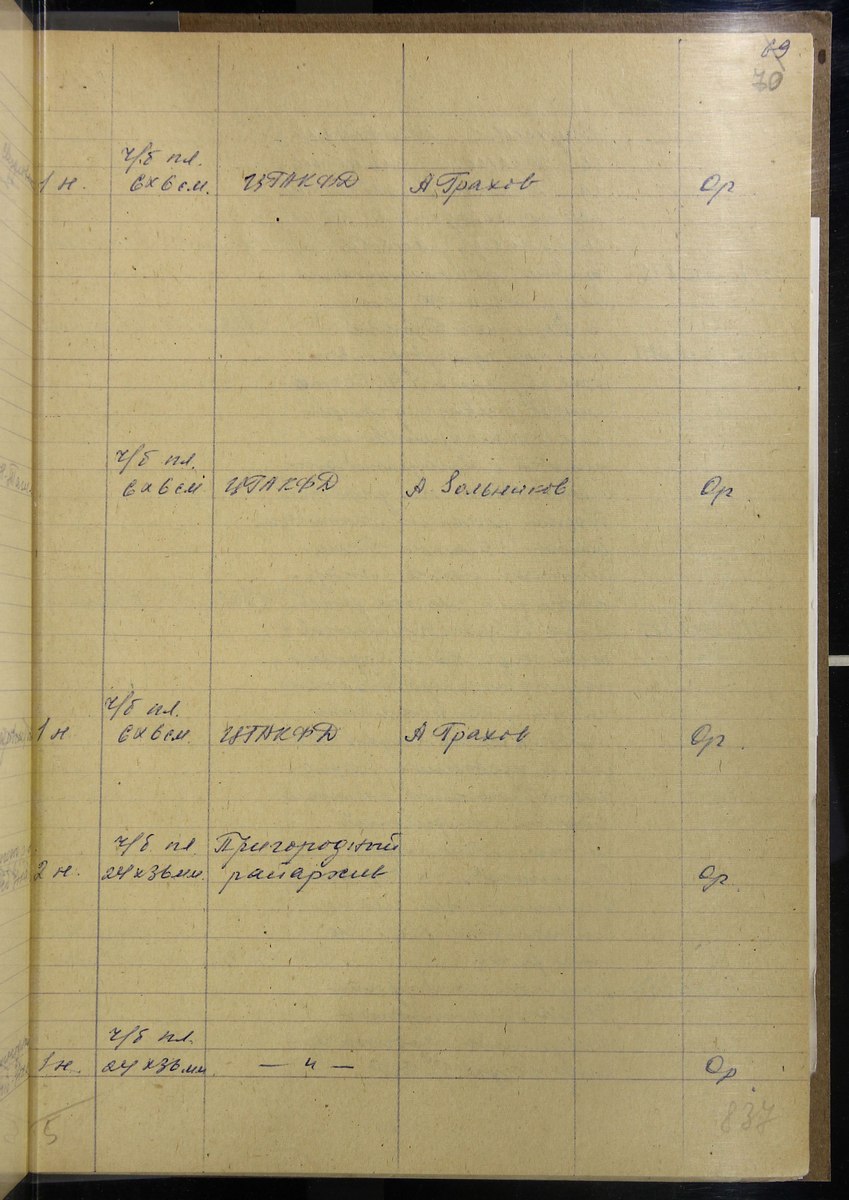 69
70
ч/б пл.
1 н. 6х6 см. ЦГАКФД А Грахов Ор
ч/б пл.
6х6 см ЦГАКФД А Зольников Ор
ч/б пл.
1 н 6х6 см. ЦГАКФД А Грахов Ор
ч/б пл Пригородный
2 н. 24х36 мм. райархив Ор
ч/б пл.
1 н. 24х36 мм. — и — Ор
5
837